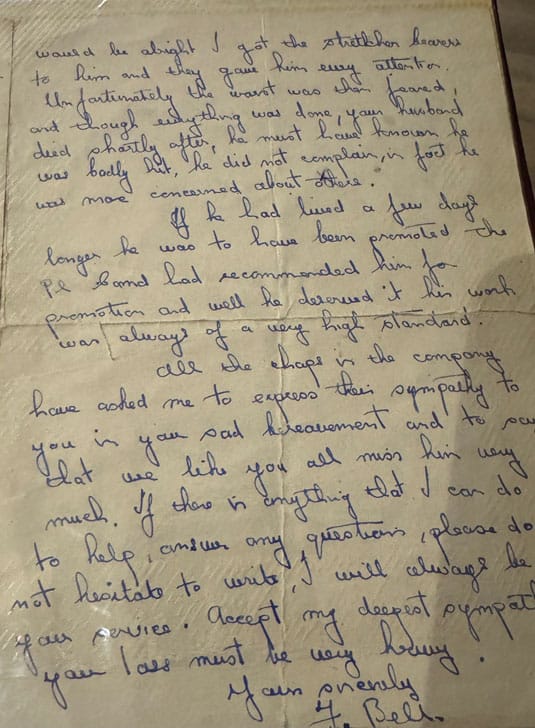 would be alright I got the stretcher bearers
to him and they gave him every attention.
Unfortunately the worst was then feared,
and though everything was done, your husband
died shortly after, he must have known he
was badly hit, he did not complain, in fact he
was more concerned about others.
If he had lived a few days
longer he was to have been promoted the
Pl Comd had recommended him for
promotion and well he deserved it his work
was always of a very high standard.
All the chaps in the company
have asked me to express their sympathy to
you in your sad bereavement and to say
that we like you all miss him very
much. If there is anything that I can do
to help, answer any questions, please do
not hesitate to write, I will always be
your service. Accept my deepest sympat
your loss must be very heavy.
Yours sincerely
F. Bell.